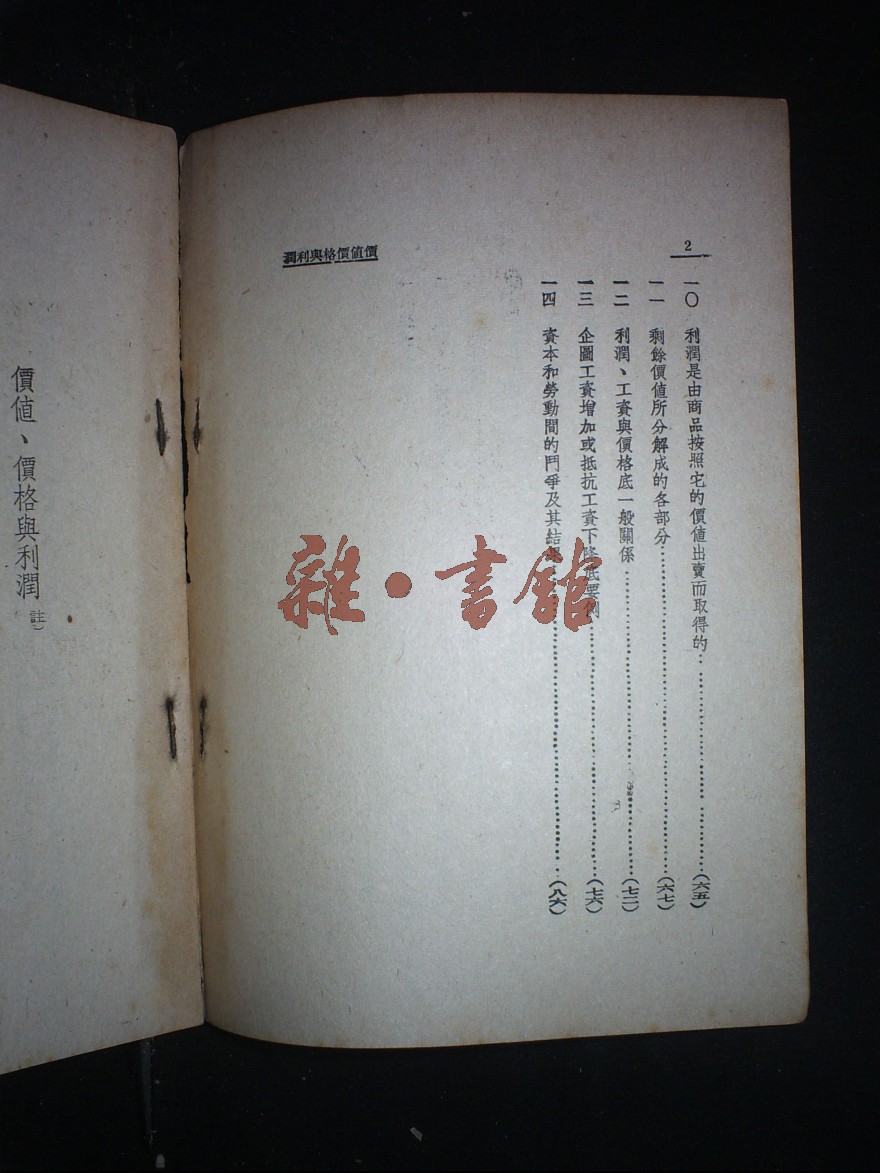 2
價值價格與利潤
一〇 利潤是由商品按照它的價值出賣而取得的……(六五)
一一 剩餘價值所分解成的各部分……(六七)
一二 利潤、工資與價格底一般關係……(七二)
一三 企圖工資增加或抵抗工資下降底要例……(七六)
一四 資本和勞動間的鬥爭及其結果……(八六)
價值、價格與利潤(註)
雜·書館